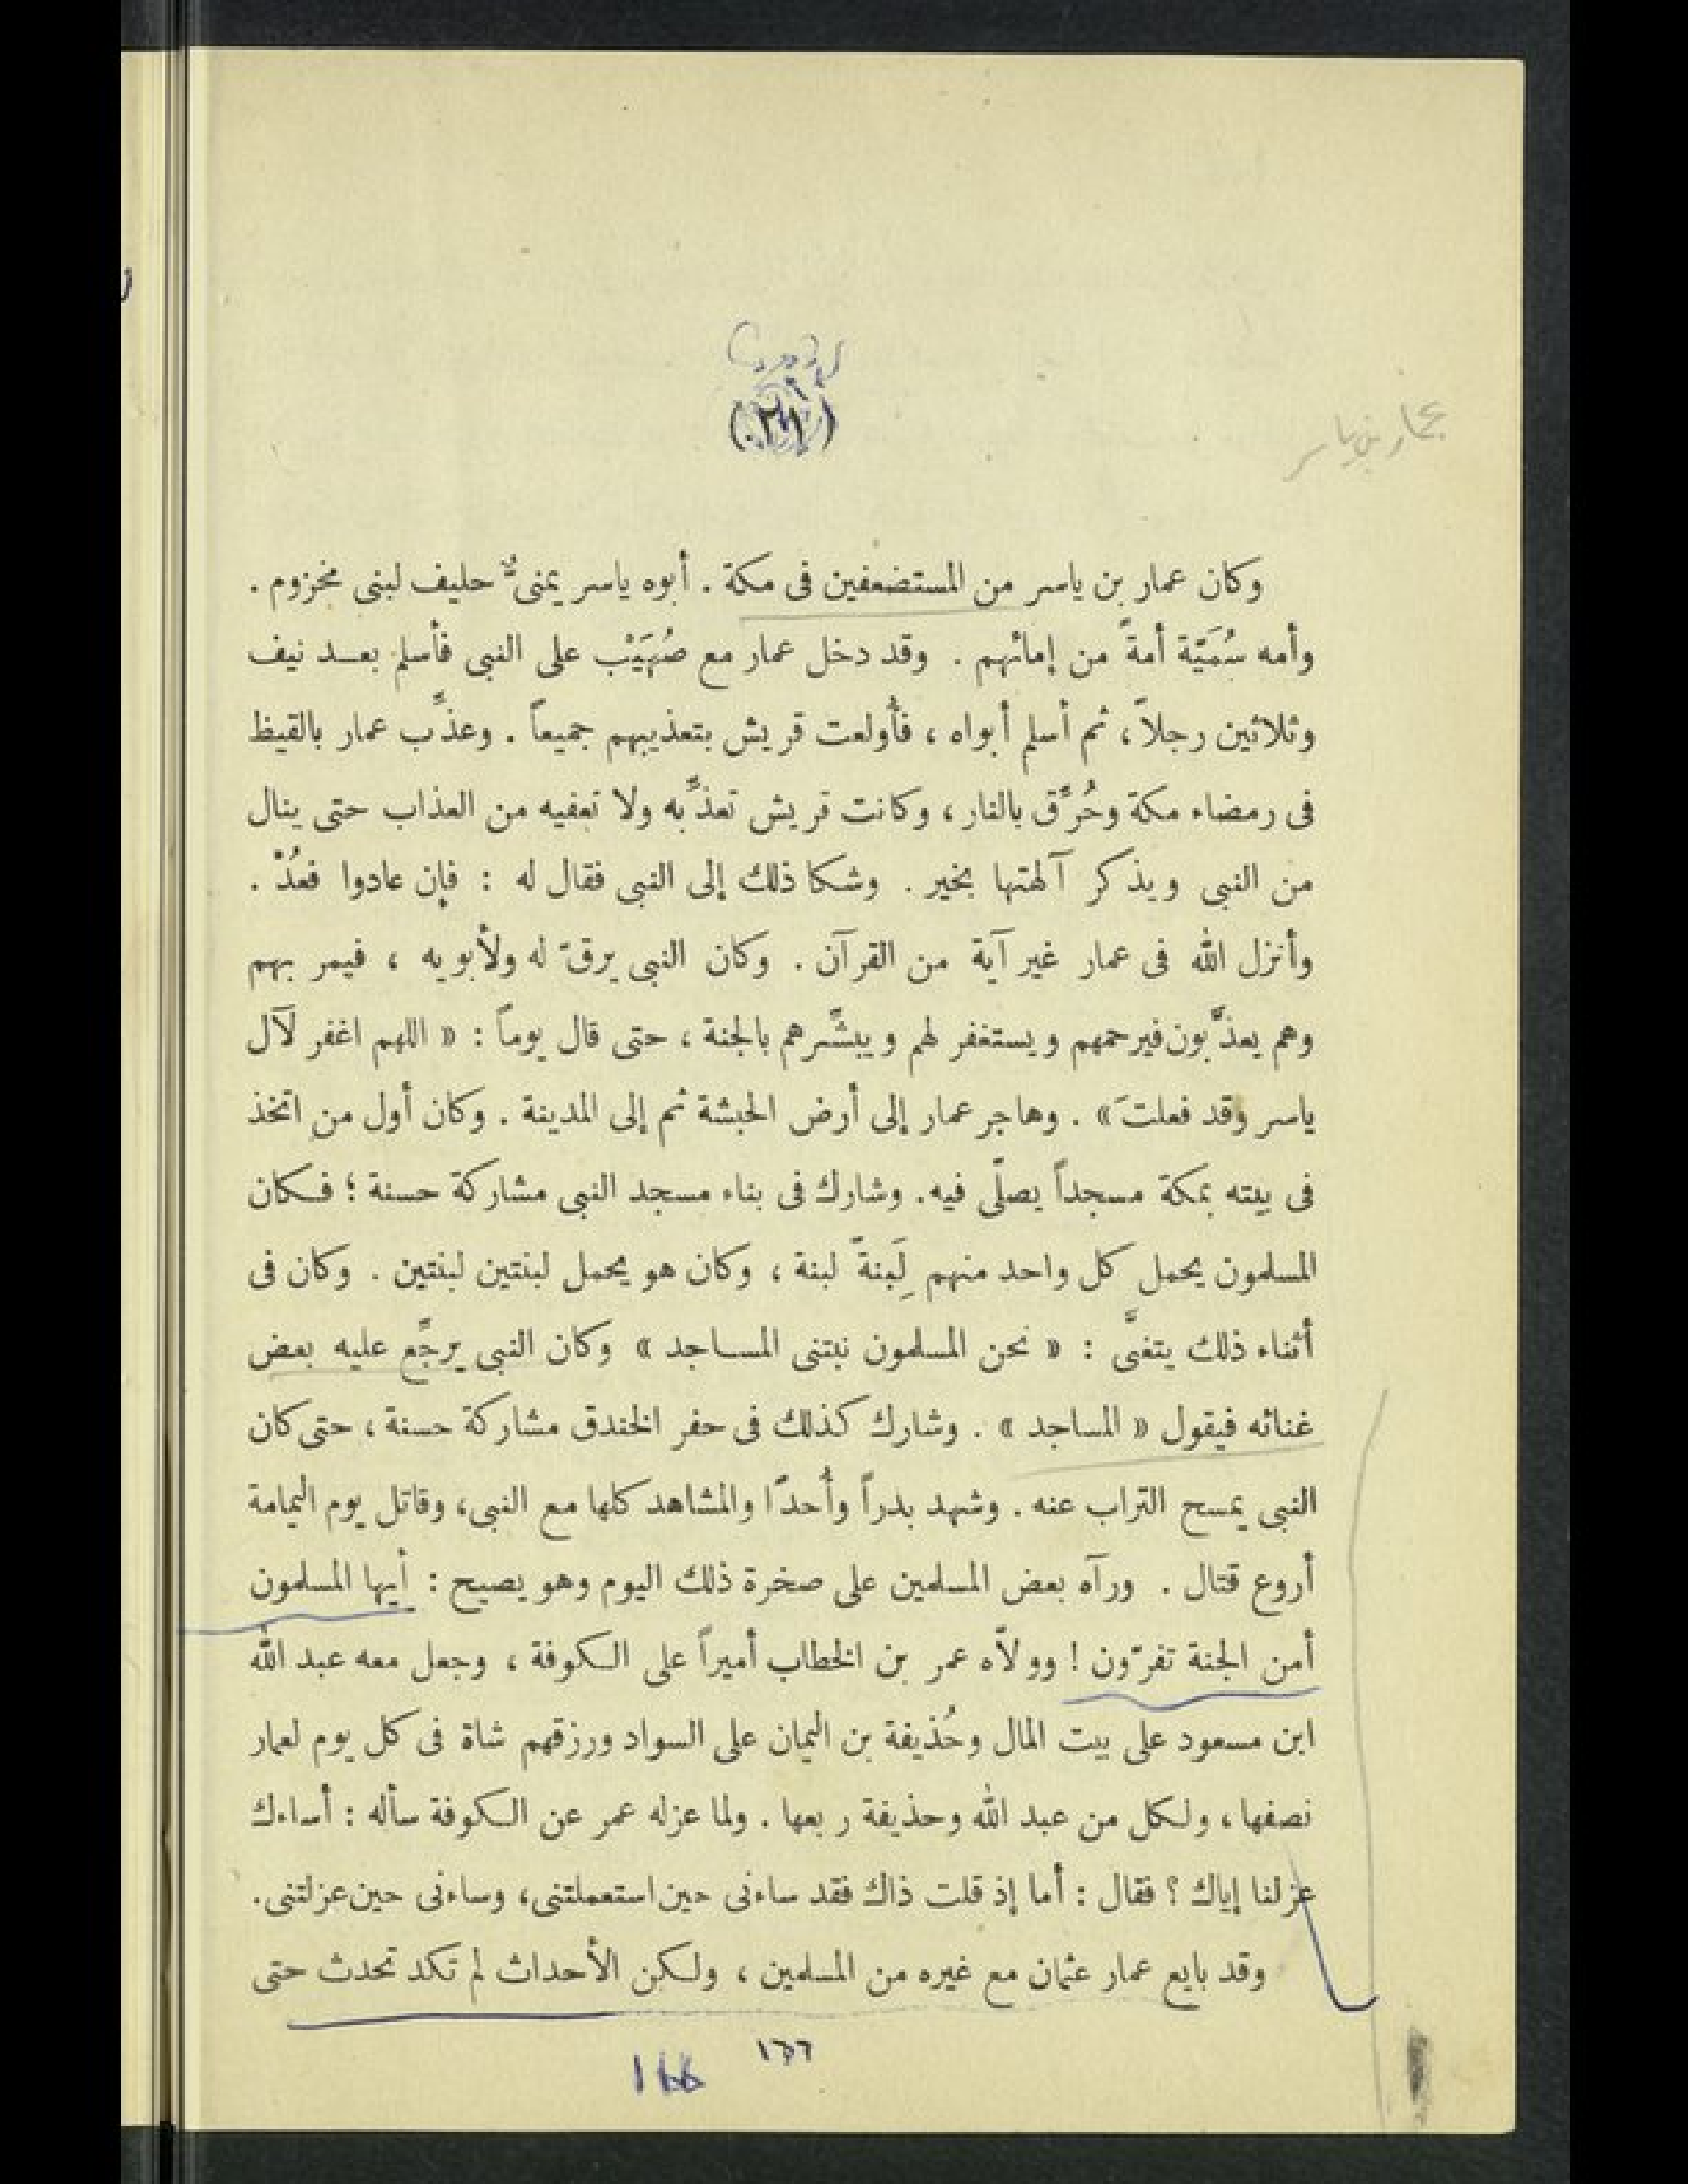 عمار بن ياسر
(٢١)
وكان عمار بن ياسر من المستضعفين فى مكة . أبوه ياسر يمنىٌّ حليف لبنى مخزوم .
وأمه سُمَيّة أمة من إمائهم . وقد دخل عمار مع صُهَيْب على النبى فأسلم بعد نيف
وثلاثين رجلاً، ثم أسلم أبواه ، فأُولعت قريش بتعذيبهم جميعاً . وعذِّب عمار بالقيظ
فى رمضاء مكة وحُرِّق بالنار ، وكانت قريش تعذِّبه ولا تعفيه من العذاب حتى ينال
من النبى ويذكر آلهتها بخير . وشكا ذلك إلى النبى فقال له : فإن عادوا فعُدْ .
وأنزل الله فى عمار غير آية من القرآن . وكان النبى يرقّ له ولأبويه ، فيمر بهم
وهم يعذَّبون فيرحمهم ويستغفر لهم ويبشِّرهم بالجنة ، حتى قال يوماً : « اللهم اغفر لآل
ياسر وقد فعلتَ » . وهاجر عمار إلى أرض الحبشة ثم إلى المدينة . وكان أول من اتخذ
فى بيته بمكة مسجداً يصلّى فيه. وشارك فى بناء مسجد النبى مشاركة حسنة ؛ فكان
المسلمون يحمل كل واحد منهم لَبِنةً لبنة ، وكان هو يحمل لبنتين لبنتين . وكان فى
أثناء ذلك يتغنَّى : « نحن المسلمون نبتنى المساجد » وكان النبى يرجِّع عليه بعض
غنائه فيقول « المساجد » . وشارك كذلك فى حفر الخندق مشاركة حسنة ، حتى كان
النبى يمسح التراب عنه . وشهد بدراً وأُحدًا والمشاهد كلها مع النبى، وقاتل يوم اليمامة
أروع قتال . ورآه بعض المسلمين على صخرة ذلك اليوم وهو يصيح : أيها المسلمون
أمن الجنة تفرّون ! وولاّه عمر بن الخطاب أميراً على الكوفة ، وجعل معه عبد الله
ابن مسعود على بيت المال وحُذيفة بن اليمان على السواد ورزقهم شاة فى كل يوم لعمار
نصفها ، ولكل من عبد الله وحذيفة ربعها . ولما عزله عمر عن الكوفة سأله : أساءك
عزلنا إياك ؟ فقال : أما إذ قلت ذاك فقد ساءنى حين استعملتنى، وساءنى حين عزلتنى.
وقد بايع عمار عثمان مع غيره من المسلمين ، ولكن الأحداث لم تكد تحدث حتى
١٦٦